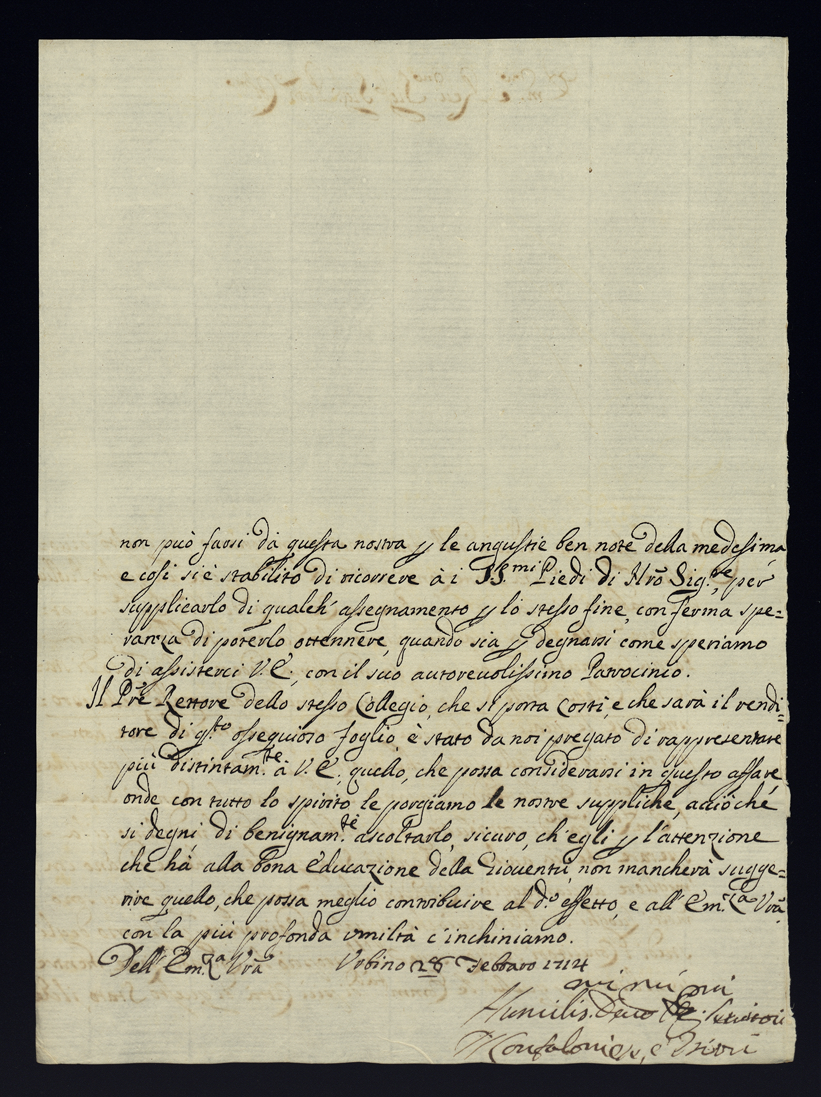 non può farsi da questa nostra p le angustie ben note della medesima
e così si è stabilito di ricorrere à i SS.mi Piedi di Nrõ Sig.re, per
supplicarlo di qualch' assegnamento p lo stesso fine, con ferma spe=
ranza di poterlo ottennere, quando sia p degnarsi come speriamo
di assisterci V.E., con il suo autorevolissimo Patrocinio.
Il Prẽ Rettore dello stesso Collegio, che si porta costì, e che sarà il vendi=
tore di q.sto ossequioso foglio, è stato da noi pregato di rappresentare
più distintam.te à V.E. quello, che possa considerarsi in questo affare
onde con tutto lo spirito le porgiamo le nostre suppliche, acciò che
si degni di benignam.te ascoltarlo, sicuro, ch'egli p l'attenzione
che hà alla bona Educazione della Gioventù, non mancherà sugge=
rire quello, che possa meglio contribuire al d.o effetto, e all' Em.za Vrã
con la più profonda umiltà c'inchiniamo.
Dell' Em.za Vrã Urbino 28 Febraro 1714
mi mi mi
Humilis. Devo Servitori
Confalonier, e Priori